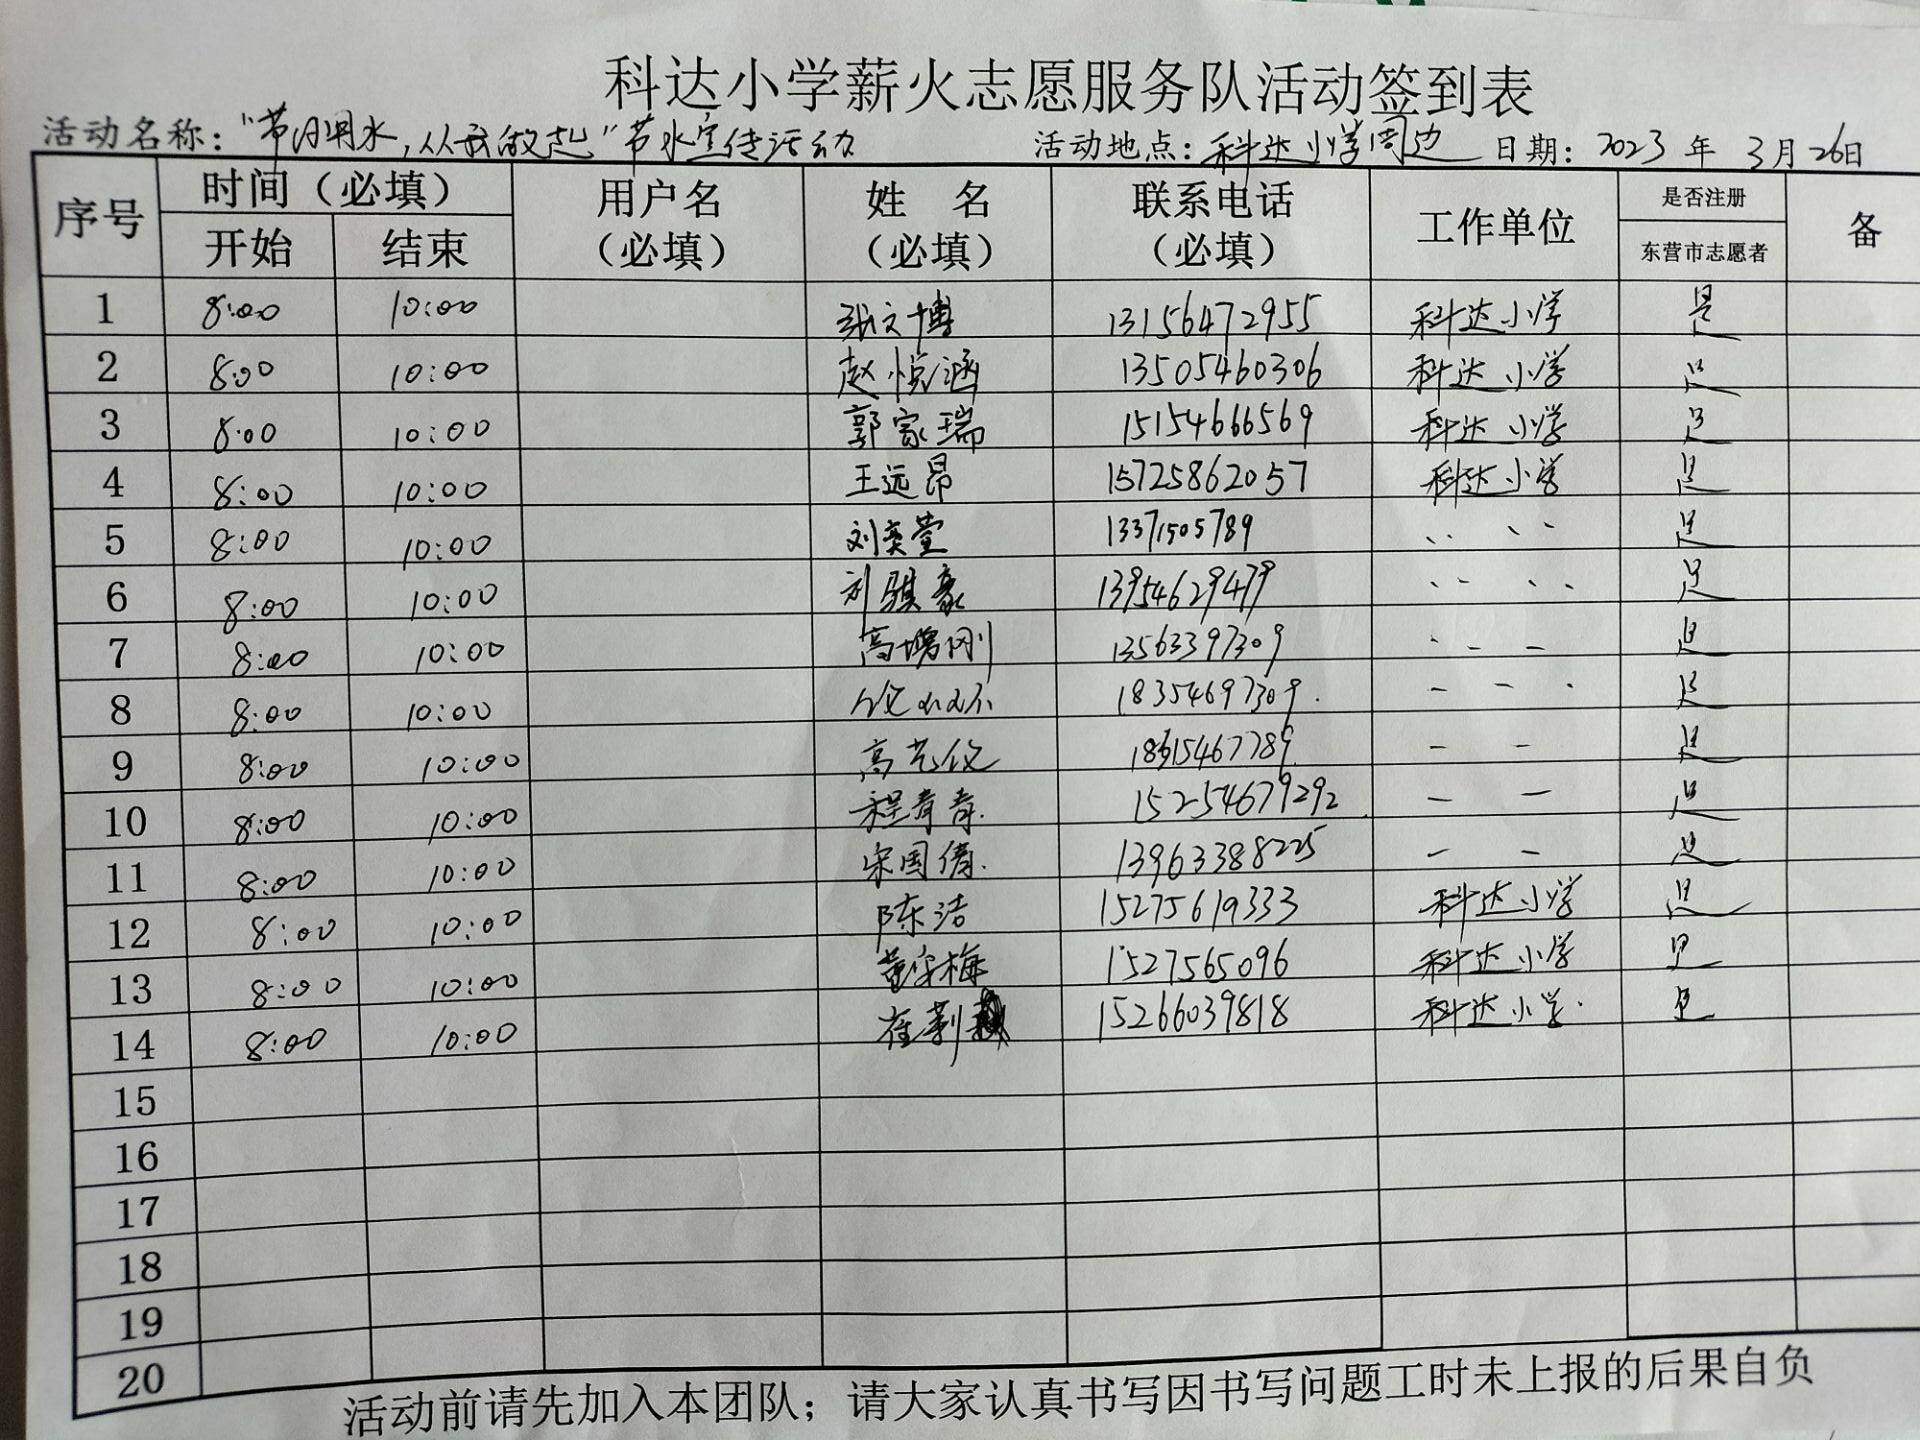 科达小学薪火志愿服务队活动签到表
活动名称："节约用水,从我做起"节水宣传活动 活动地点：科达小学周边 日期：2023 年 3月 26日
序号 时间（必填） 用户名（必填） 姓 名（必填） 联系电话（必填） 工作单位 是否注册 备
开始 结束 东营市志愿者
1 8:00 10:00 张文博 13156472955 科达小学 是
2 8:00 10:00 赵悦涵 13505460306 科达小学 是
3 8:00 10:00 郭家瑞 15154666569 科达小学 是
4 8:00 10:00 王远昂 15725862057 科达小学 是
5 8:00 10:00 刘奕萱 13371505789 是
6 8:00 10:00 刘骐豪 13954629479 是
7 8:00 10:00 高增刚 13563397309 是
8 8:00 10:00 18354697309. 是
9 8:00 10:00 高艺仪 18615467789 是
10 8:00 10:00 程青青. 15254679292 是
11 8:00 10:00 宋国倩. 13963388225 是
12 8:00 10:00 陈洁 15275619333 科达小学 是
13 8:00 10:00 1527565096 科达小学 是
14 8:00 10:00 崔莉 15266039818 科达小学. 是
15
16
17
18
19
20
活动前请先加入本团队；请大家认真书写因书写问题工时未上报的后果自负